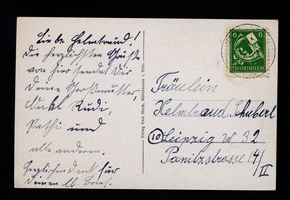 Liebe Helmtraud!
Die herzlichsten Grüße
von hier sendet Dir
Deine Großmutter,
Onkel Rudi,
Kathi und
alle anderen.
Herzlichen Dank für
Deinen lb. Brief.
Verlag Paul
6 6
THÜRINGEN
Fräulein
Helmtraud Schubert
(10) Leipzig W 32
Panitzstrasse 14/
II